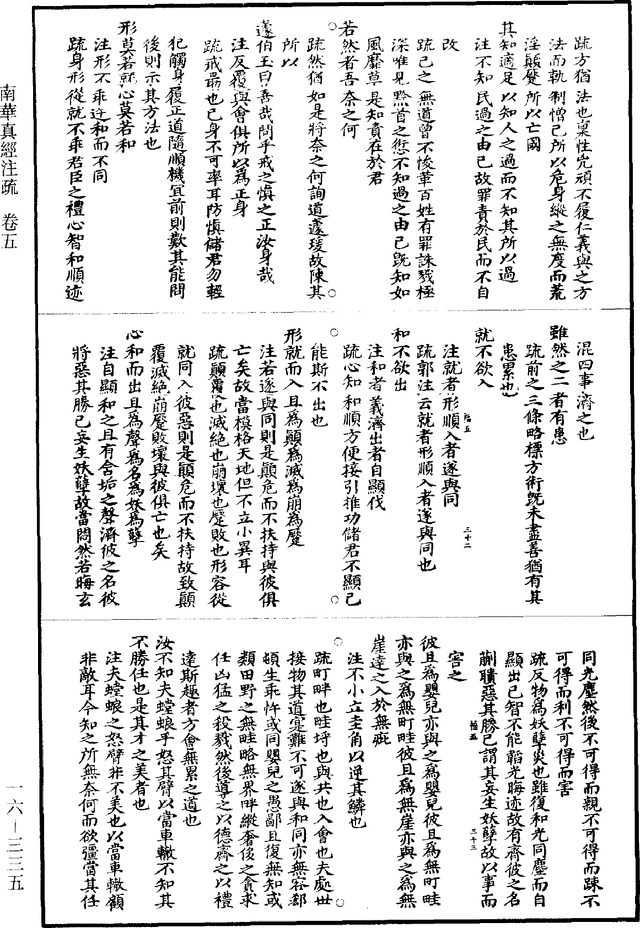 疏方猶法也稟性兇頑不履仁義與之方
法而軌制憎己所以危身縱之無度而荒
淫顛蹷所以亡國
其知適足以知人之過而不知其所以過
注不知民過之由己故罪責於民而不自
改
疏己之無道曾不悛革百姓有罪誅戮極
深唯見黔首之愆不知過之由己既知如
風靡草是知責在於君
若然者吾奈之何
疏然猶如是將奈之何詢道蘧瑗故陳其
所以
蘧伯玉曰善哉問乎戒之慎之正汝身哉
注反覆與會俱所以為正身
疏戒最也己身不可率耳防慎儲君勿輕
犯觸身履正道隨順機宜前則歎其能問
後則示其方法也
形莫若就心莫若和
注形不乖迕和而不同
疏身形從就不乖君臣之禮心智和順迹
混四事濟之也
雖然之二者有患
疏前之三條略標方術既未盡善猶有其
患累也
就不欲入
注就者形順入者遂與同
疏郭注云就者形順入者遂與同也
和不欲出
注和者義濟出者自顯伐
疏心知和順方便接引推功儲君不顯己
能斯不出也
形就而入且為顛為滅為崩為蹷
注若遂與同則是顛危而不扶持與彼俱
亡矣故當模格天地但不立小異耳
疏顛覆也滅絕也崩壞也蹷敗也形容從
就同入彼惡則是顛危而不扶持故致顛
覆滅絕崩蹷敗壞與彼俱亡也矣
心和而出且為聲為名為妖為孽
注自顯和之且有含垢之聲濟彼之名彼
將惡其勝己妄生妖孽故當悶然若晦玄
同光塵然後不可得而親不可得而踈不
可得而利不可得而害
疏反物為妖孽災也雖復和光同塵而自
顯出己智不能韜光晦迹故有齊彼之名
蒯聵惡其勝己謂其妄生妖孽故以事而
害之
彼且為嬰兒亦與之為嬰兒彼且為無町畦
亦與之為無町畦彼且為無崖亦與之為無
崖達之入於無疵
注不小立圭角以逆其鱗也
疏町畔也畦埒也與共也入會也夫處世
接物其道寔難不可遂與和同亦無容鄰
頓生乖忤或同嬰兒之愚鄙且復無知或
類田野之無畦略無界畔縱奢後之貪求
任凶猛之殺戮然後導之以德齊之以禮
達斯趣者方會無累之道也
汝不知夫螳蜋乎怒其臂以當車轍不知其
不勝任也是其才之美者也
注夫螳蜋之怒臂非不美也以當車轍顧
非敵耳今知之所無奈何而欲彊當其任
南華真經注疏 卷五
一六—三三五